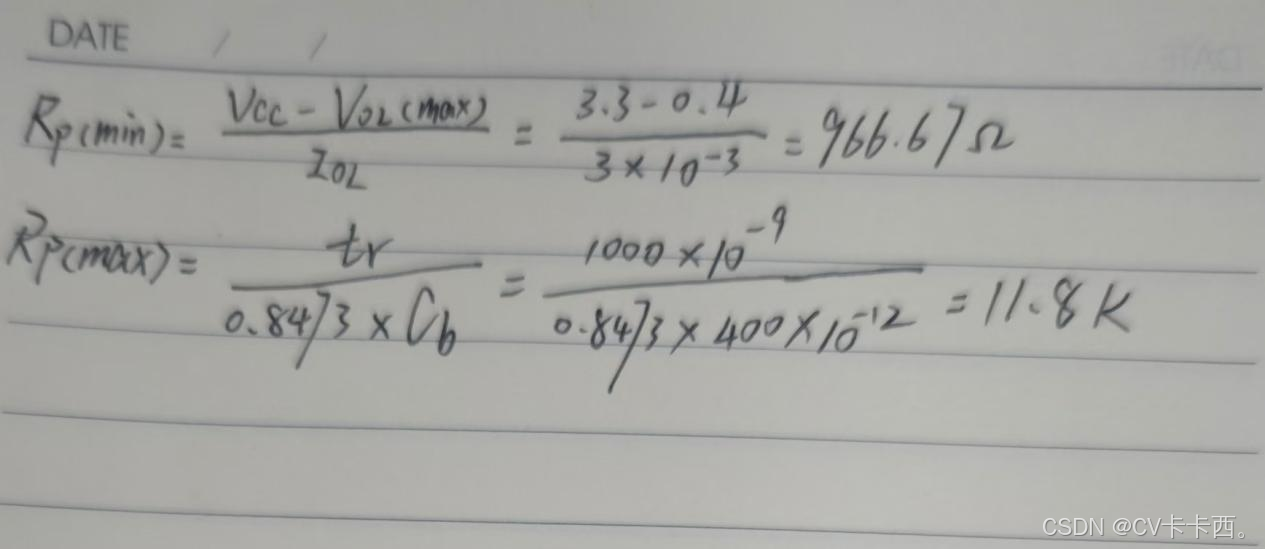 DATE / /
Rp(min) = (Vcc - VOL(max)) / IOL = (3.3 - 0.4) / (3 × 10^-3) = 966.67 Ω
Rp(max) = tr / (0.8473 × Cb) = (1000 × 10^-9) / (0.8473 × 400 × 10^-12) = 11.8 K
CSDN @CV卡卡西。